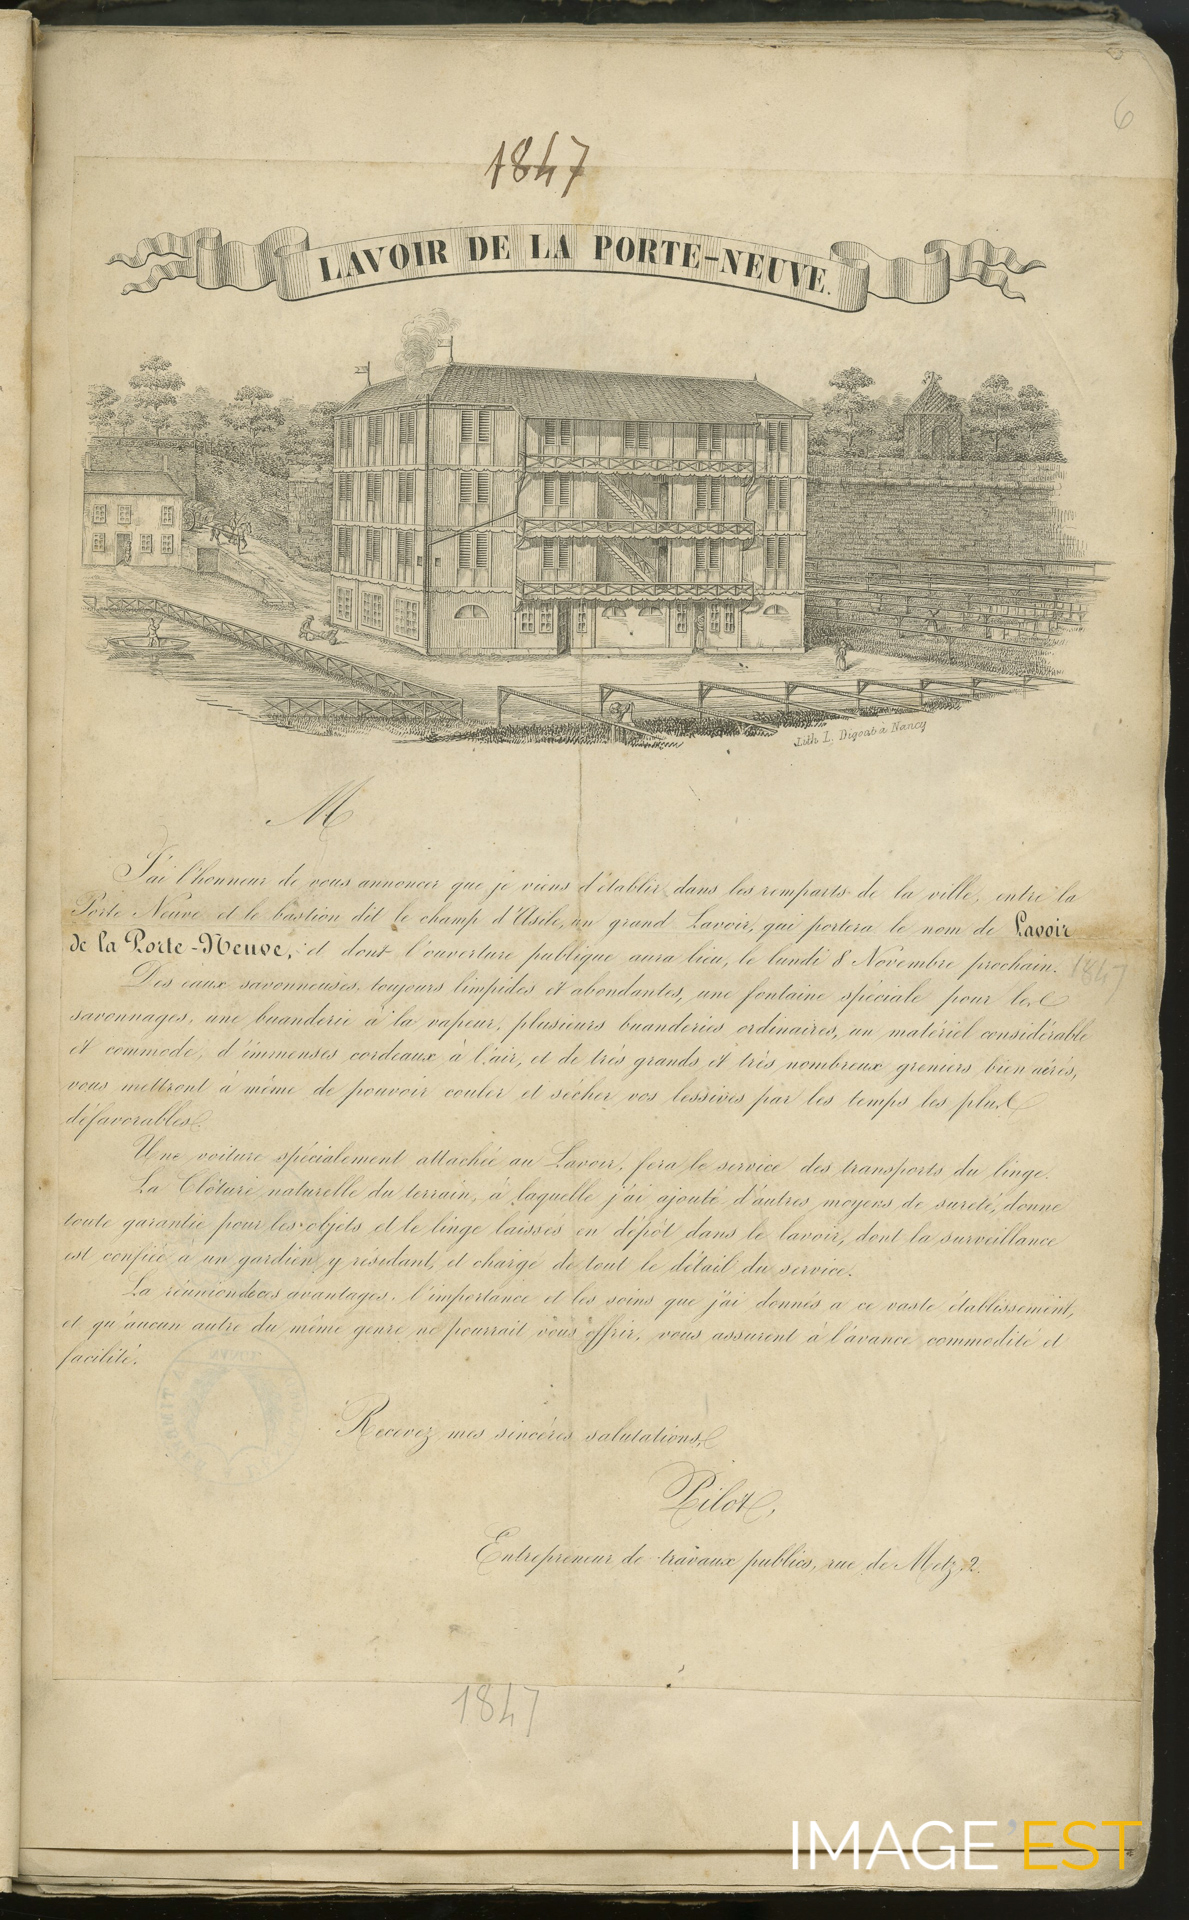 6
1847
LAVOIR DE LA PORTE-NEUVE.
Lith. L. Digout à Nancy
M
J'ai l'honneur de vous annoncer que je viens d'établir dans les remparts de la ville, entre la
Porte Neuve et le bastion dit le champ d'Asile, un grand Lavoir, qui portera le nom de Lavoir
de la Porte-Neuve, et dont l'ouverture publique aura lieu, le lundi 8 Novembre prochain. 1847
Des eaux savonneuses, toujours limpides et abondantes, une fontaine spéciale pour les
savonnages, une buanderie à la vapeur, plusieurs buanderies ordinaires, un matériel considérable
et commode, d'immenses cordeaux à l'air, et de très grands et très nombreux greniers bien aérés,
vous mettront à même de pouvoir couler et sécher vos lessives par les temps les plus
défavorables.
Une voiture spécialement attachée au Lavoir, fera le service des transports du linge.
La Clôture naturelle du terrain, à laquelle j'ai ajouté d'autres moyens de sureté, donne
toute garantie pour les objets et le linge laissés en dépôt dans le lavoir, dont la surveillance
est confiée à un gardien y résidant, et chargé de tout le détail du service.
La réunion de ces avantages, l'importance et les soins que j'ai donnés a ce vaste établissement,
et qu'aucun autre du même genre ne pourrait vous offrir, vous assurent à l'avance commodité et
facilité.
Recevez mes sincères salutations,
Pilot,
Entrepreneur de travaux publics, rue de Metz, 2.
1847
IMAGE'EST